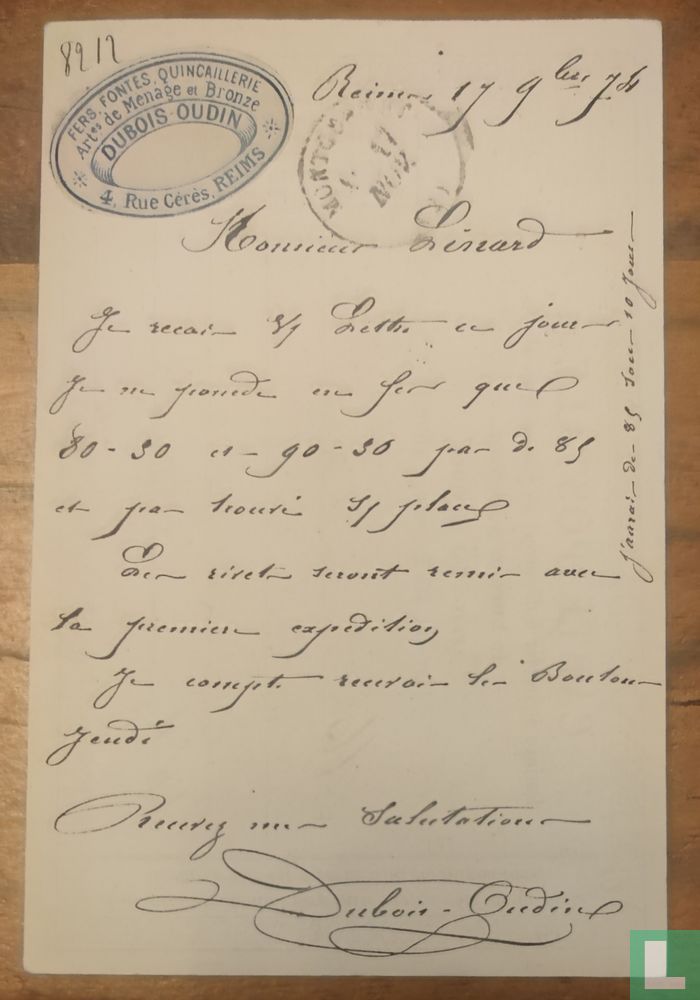 8212
FERS, FONTES, QUINCAILLERIE
Artes de Ménage et Bronze
DUBOIS-OUDIN
4, Rue Cérès, REIMS
Reims 17 9bre 74
17
NOV
Monsieur Linard
Je recois V/ Lettre ce jour
Je ne possede en fer que
80-30 et 90-30 pas de 85
et pas trouvé s/ place
Les rivets seront remis avec
la premiere expedition
Je compte recevoir les Boulons
Jeudi
Recevez mes Salutations
Dubois-Oudin
J'aurai de 85 sous 10 jours
L